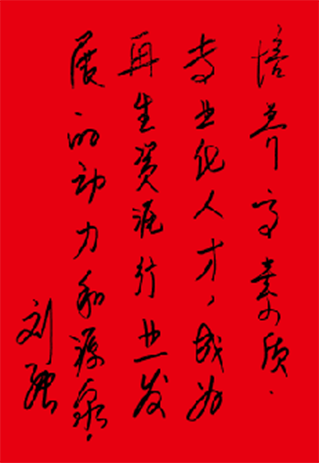 培养高素质、
专业化人才，成为
再生资源行业发
展的动力和源泉。
刘强